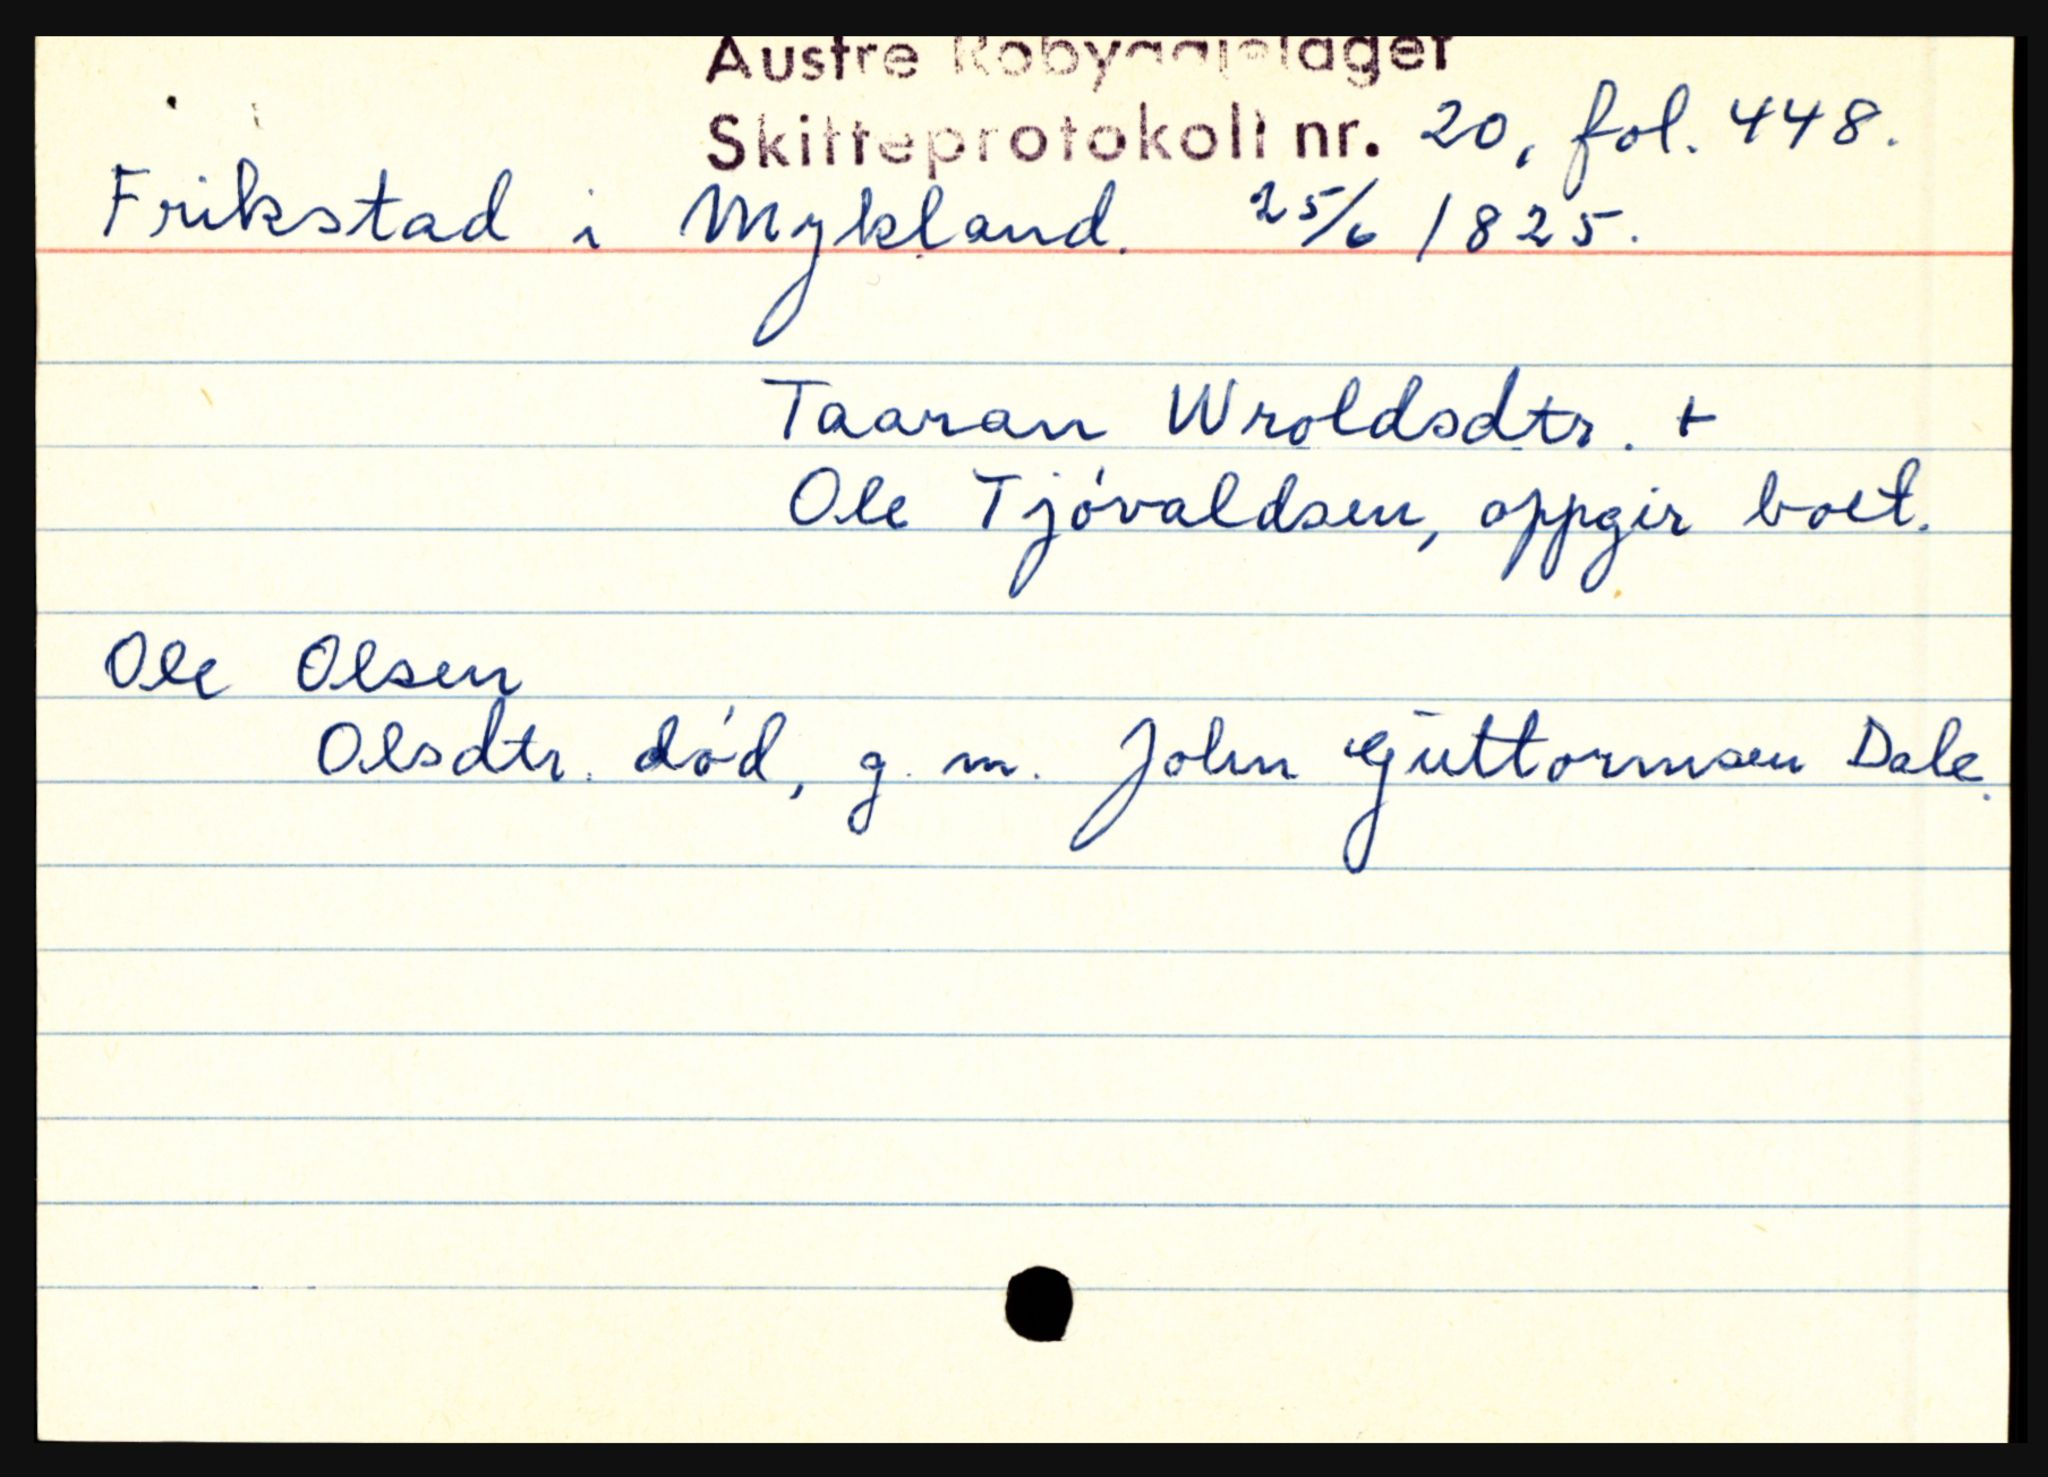 Austre Robyggjelaget
Skifteprotokoll nr. 20, fol. 448.
Frikstad i Mykland. 25/6 1825.
Taaran Wroldsdtr. +
Ole Tjóvaldsen, oppgir boet.
Ole Olsen
Olsdtr. dód, g. m. John Guttormsen Dale.